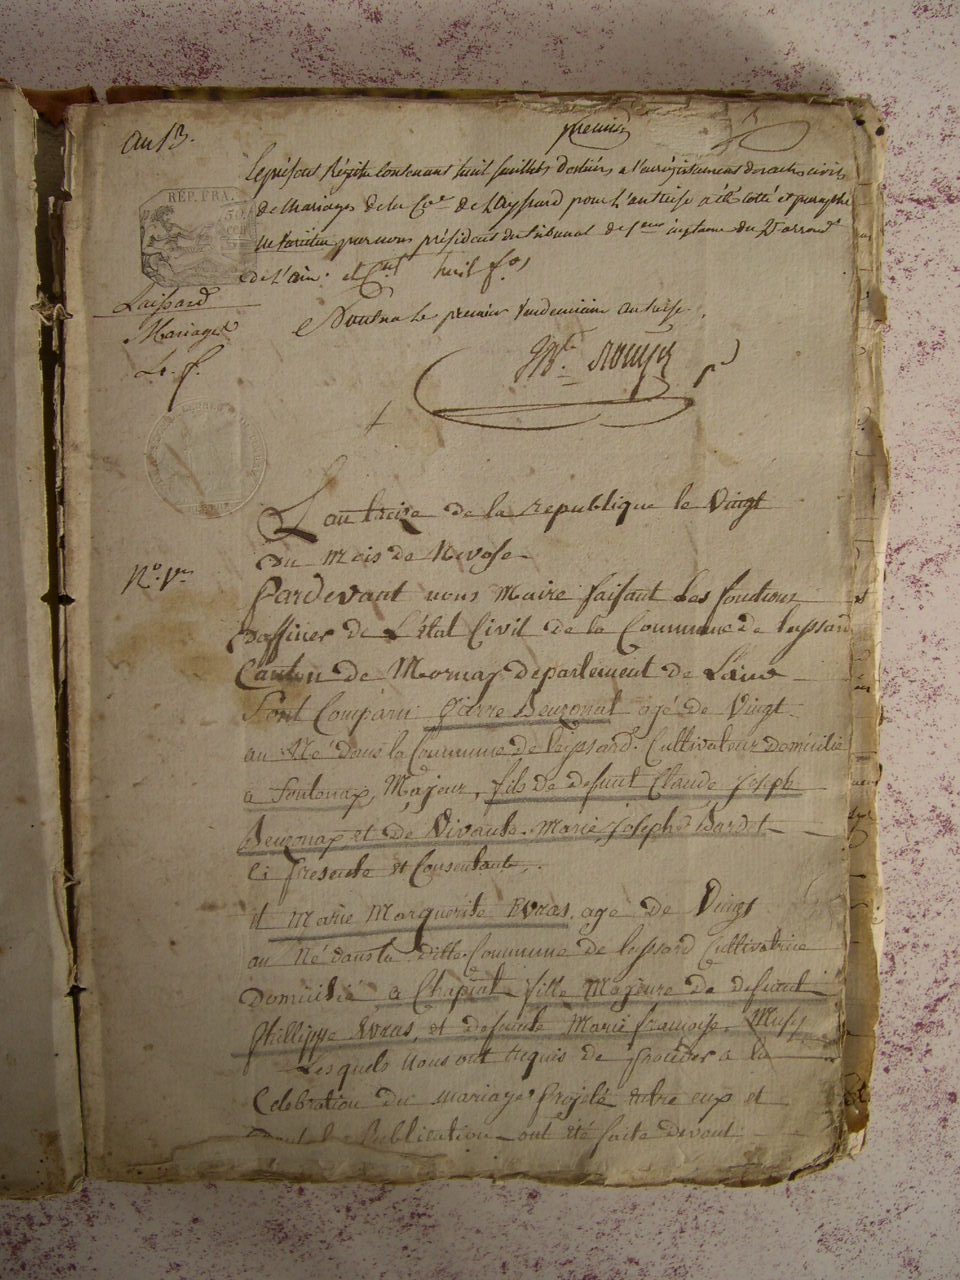 premier
an 13.
Le présent Régitre Contenant huit feuillets destinés a l'enrégistrement des actes civils
de Mariages de la Cne de Layssard pour l'an treise a été cotté et paraphé
par nous président du tribunal de 1ere instance du 2e arrondt
RÉP. FRA.
de l'ain. et Cnt huit fos
Laissard
Mariages
a Nantua le premier Vendemiaire an treise.
L'an treize de la republique le Vingt
du Mois de Nivose
No. 1er
Pardevant nous Maire faisant Les fonctions
D'affiner de L'état Civil de la Commune de leyssard
Canton de Mornay departement de L'ain
Sont Comparu Pierre Beuzonat agé de Vingt
an Né dans la Commune de leyssard. Cultivateur Domicilié
a Soulonay, Majeur, fils de defunt Claude Joseph
Beuzonay et de Vivante Marie Joseph Bardet
Ci presente et Consentante,
et Marie Marguerite Evras, age de Vingt
an Né dans la ditte Commune de leyssard Cultivatrice
Domicilié a Chapiat fille Majeure de defunt
Phillippe Evras, et defunte Marie francoise
Lesquels Nous ont requis de proceder a la
Celebration du mariage projété entre eux et
Publication ont été faite devant